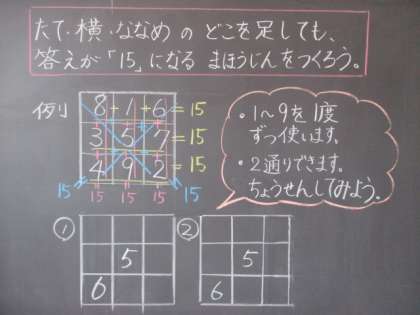 たて・横・ななめ の どこを足しても、
答えが「15」になる まほうじんをつくろう。
例)
8+1+6=15
3 5 7=15
4 9 2=15
15 15 15 15 15
・1〜9を1度
ずつ使います。
・2通りできます。
ちょうせんしてみよう。
① ②
5 5
6 6